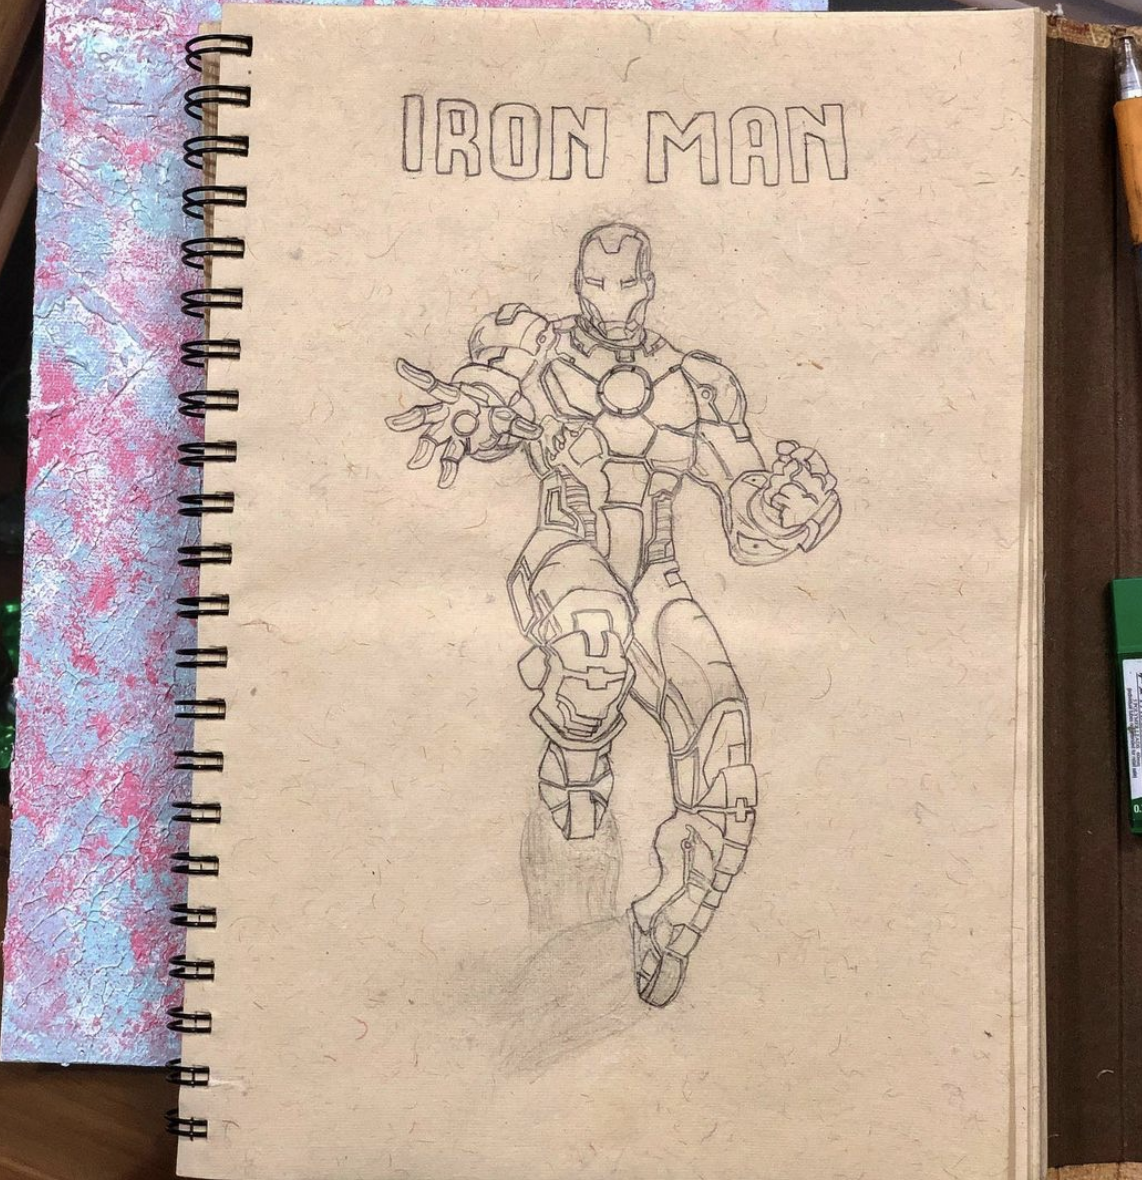 IRON MAN
0.